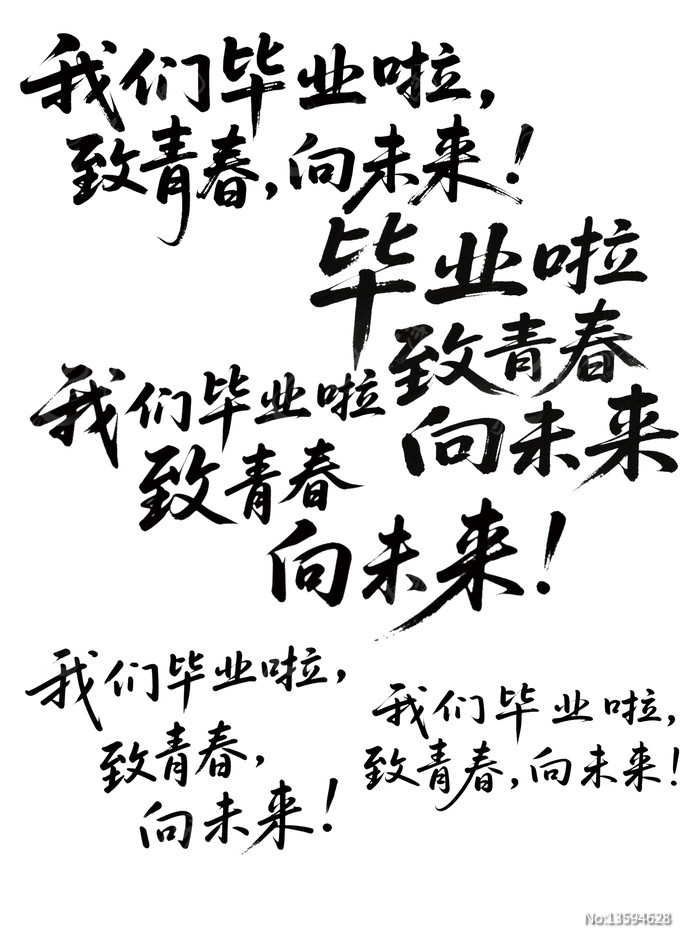 我们毕业啦，
致青春，向未来！
毕业啦
致青春
向未来
我们毕业啦
致青春
向未来！
我们毕业啦，
致青春，
向未来！
我们毕业啦，
致青春，向未来！
No:13594628